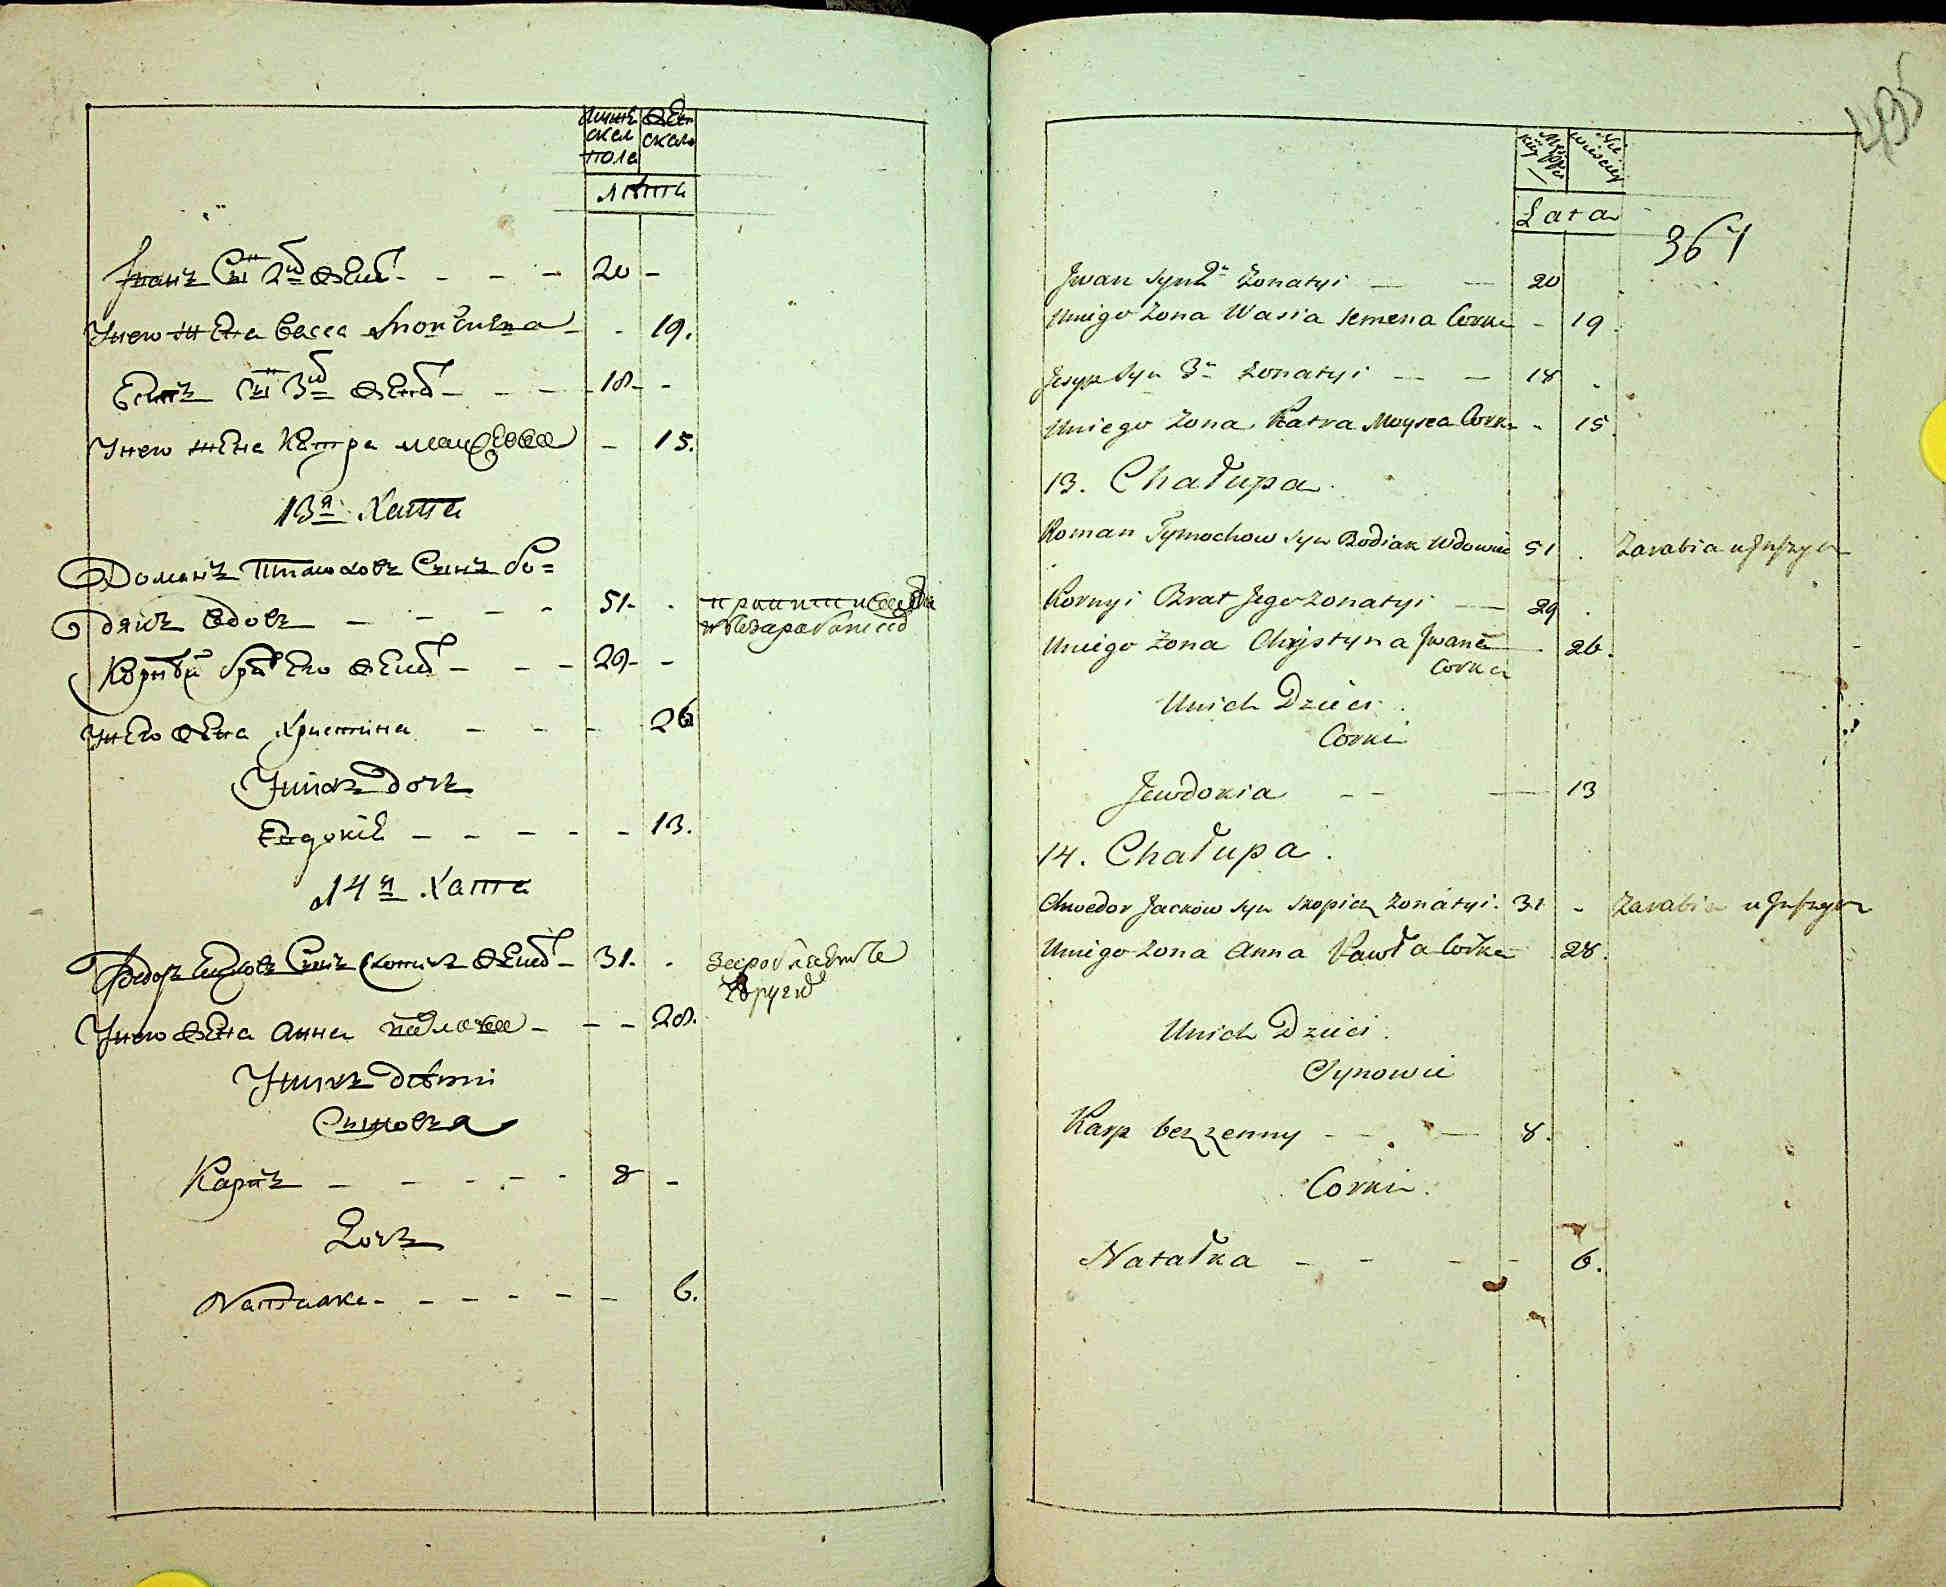 мужескаго пола
женскаго
лѣта
Іванъ Сынъ 2й женат - - - 20 -
У него жена Васса - - 19.
Есипъ Сынъ 3й женат - - - 18 - -
У него жена Катра - 15.
13я Хата
Романъ Тимоховъ Синъ Бо=
дякъ вдовъ - - - - 51. -
Корній братъ его женат - - - 29 - -
У него жена Христина - - - 26
У нихъ дочь
Евдокія - - - - - 13.
14я Хата
Федоръ Яцковъ Синъ Скопичъ женат - 31. -
У него жена Анна Павлова - - - 28.
У нихъ дѣти
Сыновья
Карпъ - - - - - 8 -
Дочь
Наталка - - - - - - 6.
435
Męzkiey
Niewieściey
Lata
367
Jwan Syn 2n Żonatyi — — 20
Uniego Żona Wasia Semena Corka - 19.
Jesyp Syn 3n Żonatyi — — 18 -
Uniego Żona Katra Moysea Corka - 15.
13. Chałupa.
Roman Tymochow Syn Bodiak Wdowiec 51 . Zarabia u
Kornyi Brat Jego Żonatyi — — 29 .
Uniego Żona Chrystyna Jwana - 26.
Corka
Unich Dzieci.
Corki
Jewdokia - - — 13
14. Chałupa.
Chwedor Jackow Syn Skopicz Żonatyi. 31 - Zarabia u
Uniego Żona Anna Pawła Corka - 28.
Unich Dzieci.
Synowie
Karp bezzenny - - - — 8.
Corki.
Natałka - - - - 6.